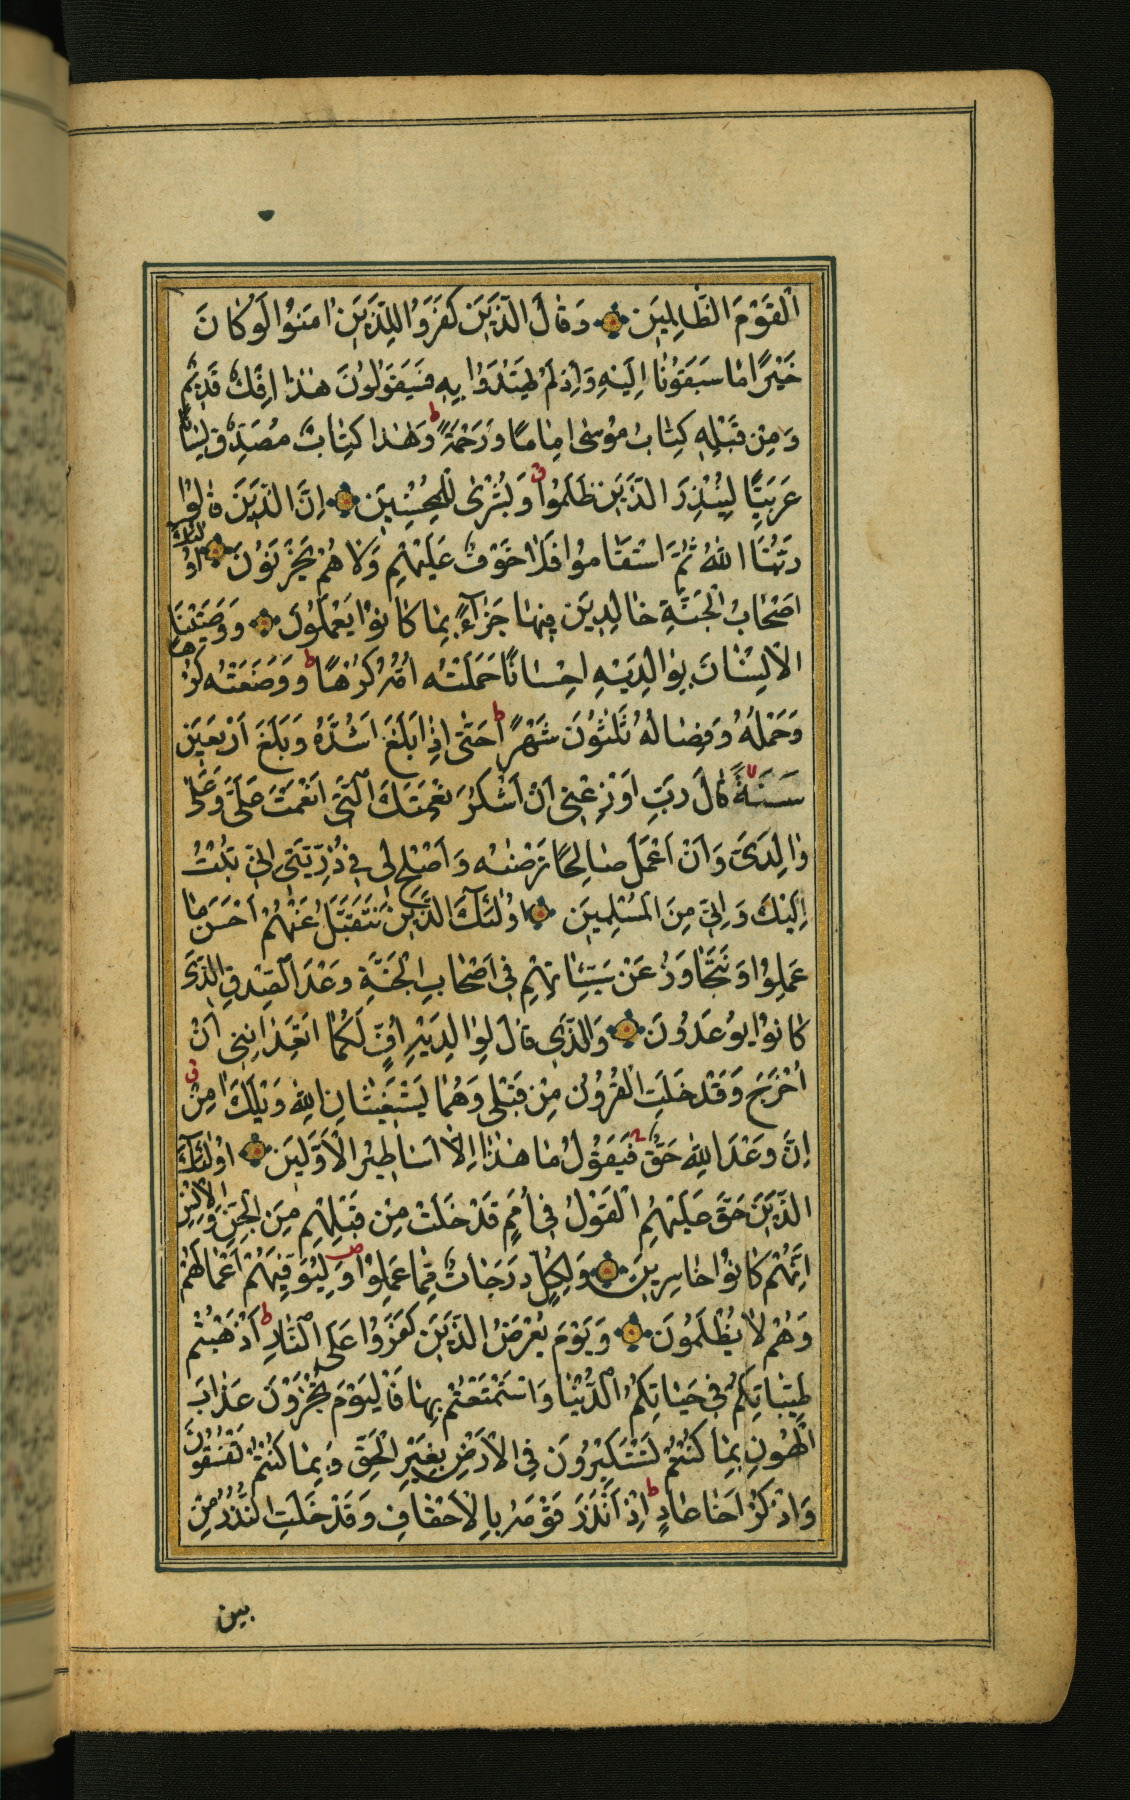 الْقَوْمَ الظَّالِمِينَ وَقَالَ الَّذِينَ كَفَرُوا لِلَّذِينَ اٰمَنُوا لَوْ كَانَ
خَيْرًا مَا سَبَقُونَا اِلَيْهِ وَاِذْ لَمْ يَهْتَدُوا بِهِ فَسَيَقُولُونَ هٰذَا اِفْكٌ قَدِيمٌ
وَمِنْ قَبْلِهِ كِتَابُ مُوسٰى اِمَامًا وَرَحْمَةً ط وَهٰذَا كِتَابٌ مُصَدِّقٌ لِسَانًا
عَرَبِيًّا لِيُنْذِرَ الَّذِينَ ظَلَمُوا ق وَبُشْرٰى لِلْمُحْسِنِينَ اِنَّ الَّذِينَ قَالُوا
رَبُّنَا اللّٰهُ ثُمَّ اسْتَقَامُوا فَلَا خَوْفٌ عَلَيْهِمْ وَلَا هُمْ يَحْزَنُونَ اُولٰئِكَ
اَصْحَابُ الْجَنَّةِ خَالِدِينَ فِيهَا جَزَاءً بِمَا كَانُوا يَعْمَلُونَ وَوَصَّيْنَا
الْاِنْسَانَ بِوَالِدَيْهِ اِحْسَانًا حَمَلَتْهُ اُمُّهُ كُرْهًا ط وَوَضَعَتْهُ كُرْهًا
وَحَمْلُهُ وَفِصَالُهُ ثَلٰثُونَ شَهْرًا ط حَتّٰى اِذَا بَلَغَ اَشُدَّهُ وَبَلَغَ اَرْبَعِينَ
سَنَةً لا قَالَ رَبِّ اَوْزِعْنِى اَنْ اَشْكُرَ نِعْمَتَكَ الَّتِى اَنْعَمْتَ عَلَىَّ وَعَلٰى
وَالِدَىَّ وَاَنْ اَعْمَلَ صَالِحًا تَرْضٰيهُ وَاَصْلِحْ لِى فِى ذُرِّيَّتِى اِنِّى تُبْتُ
اِلَيْكَ وَاِنِّى مِنَ الْمُسْلِمِينَ اُولٰئِكَ الَّذِينَ نَتَقَبَّلُ عَنْهُمْ اَحْسَنَ مَا
عَمِلُوا وَنَتَجَاوَزُ عَنْ سَيِّئَاتِهِمْ فِى اَصْحَابِ الْجَنَّةِ وَعْدَ الصِّدْقِ الَّذِى
كَانُوا يُوعَدُونَ وَالَّذِى قَالَ لِوَالِدَيْهِ اُفٍّ لَكُمَا اَتَعِدَانِنِى اَنْ
اُخْرَجَ وَقَدْ خَلَتِ الْقُرُونُ مِنْ قَبْلِى وَهُمَا يَسْتَغِيثَانِ اللّٰهَ وَيْلَكَ اٰمِنْ ق
اِنَّ وَعْدَ اللّٰهِ حَقٌّ فَيَقُولُ مَا هٰذَا اِلَّا اَسَاطِيرُ الْاَوَّلِينَ اُولٰئِكَ
الَّذِينَ حَقَّ عَلَيْهِمُ الْقَوْلُ فِى اُمَمٍ قَدْ خَلَتْ مِنْ قَبْلِهِمْ مِنَ الْجِنِّ وَالْاِنْسِ
اِنَّهُمْ كَانُوا خَاسِرِينَ وَلِكُلٍّ دَرَجَاتٌ مِمَّا عَمِلُوا وَلِيُوَفِّيَهُمْ اَعْمَالَهُمْ
وَهُمْ لَا يُظْلَمُونَ وَيَوْمَ يُعْرَضُ الَّذِينَ كَفَرُوا عَلَى النَّارِ ط اَذْهَبْتُمْ
طَيِّبَاتِكُمْ فِى حَيَاتِكُمُ الدُّنْيَا وَاسْتَمْتَعْتُمْ بِهَا فَالْيَوْمَ تُجْزَوْنَ عَذَابَ
الْهُونِ بِمَا كُنْتُمْ تَسْتَكْبِرُونَ فِى الْاَرْضِ بِغَيْرِ الْحَقِّ وَبِمَا كُنْتُمْ تَفْسُقُونَ
وَاذْكُرْ اَخَا عَادٍ ط اِذْ اَنْذَرَ قَوْمَهُ بِالْاَحْقَافِ وَقَدْ خَلَتِ النُّذُرُ مِنْ
بين